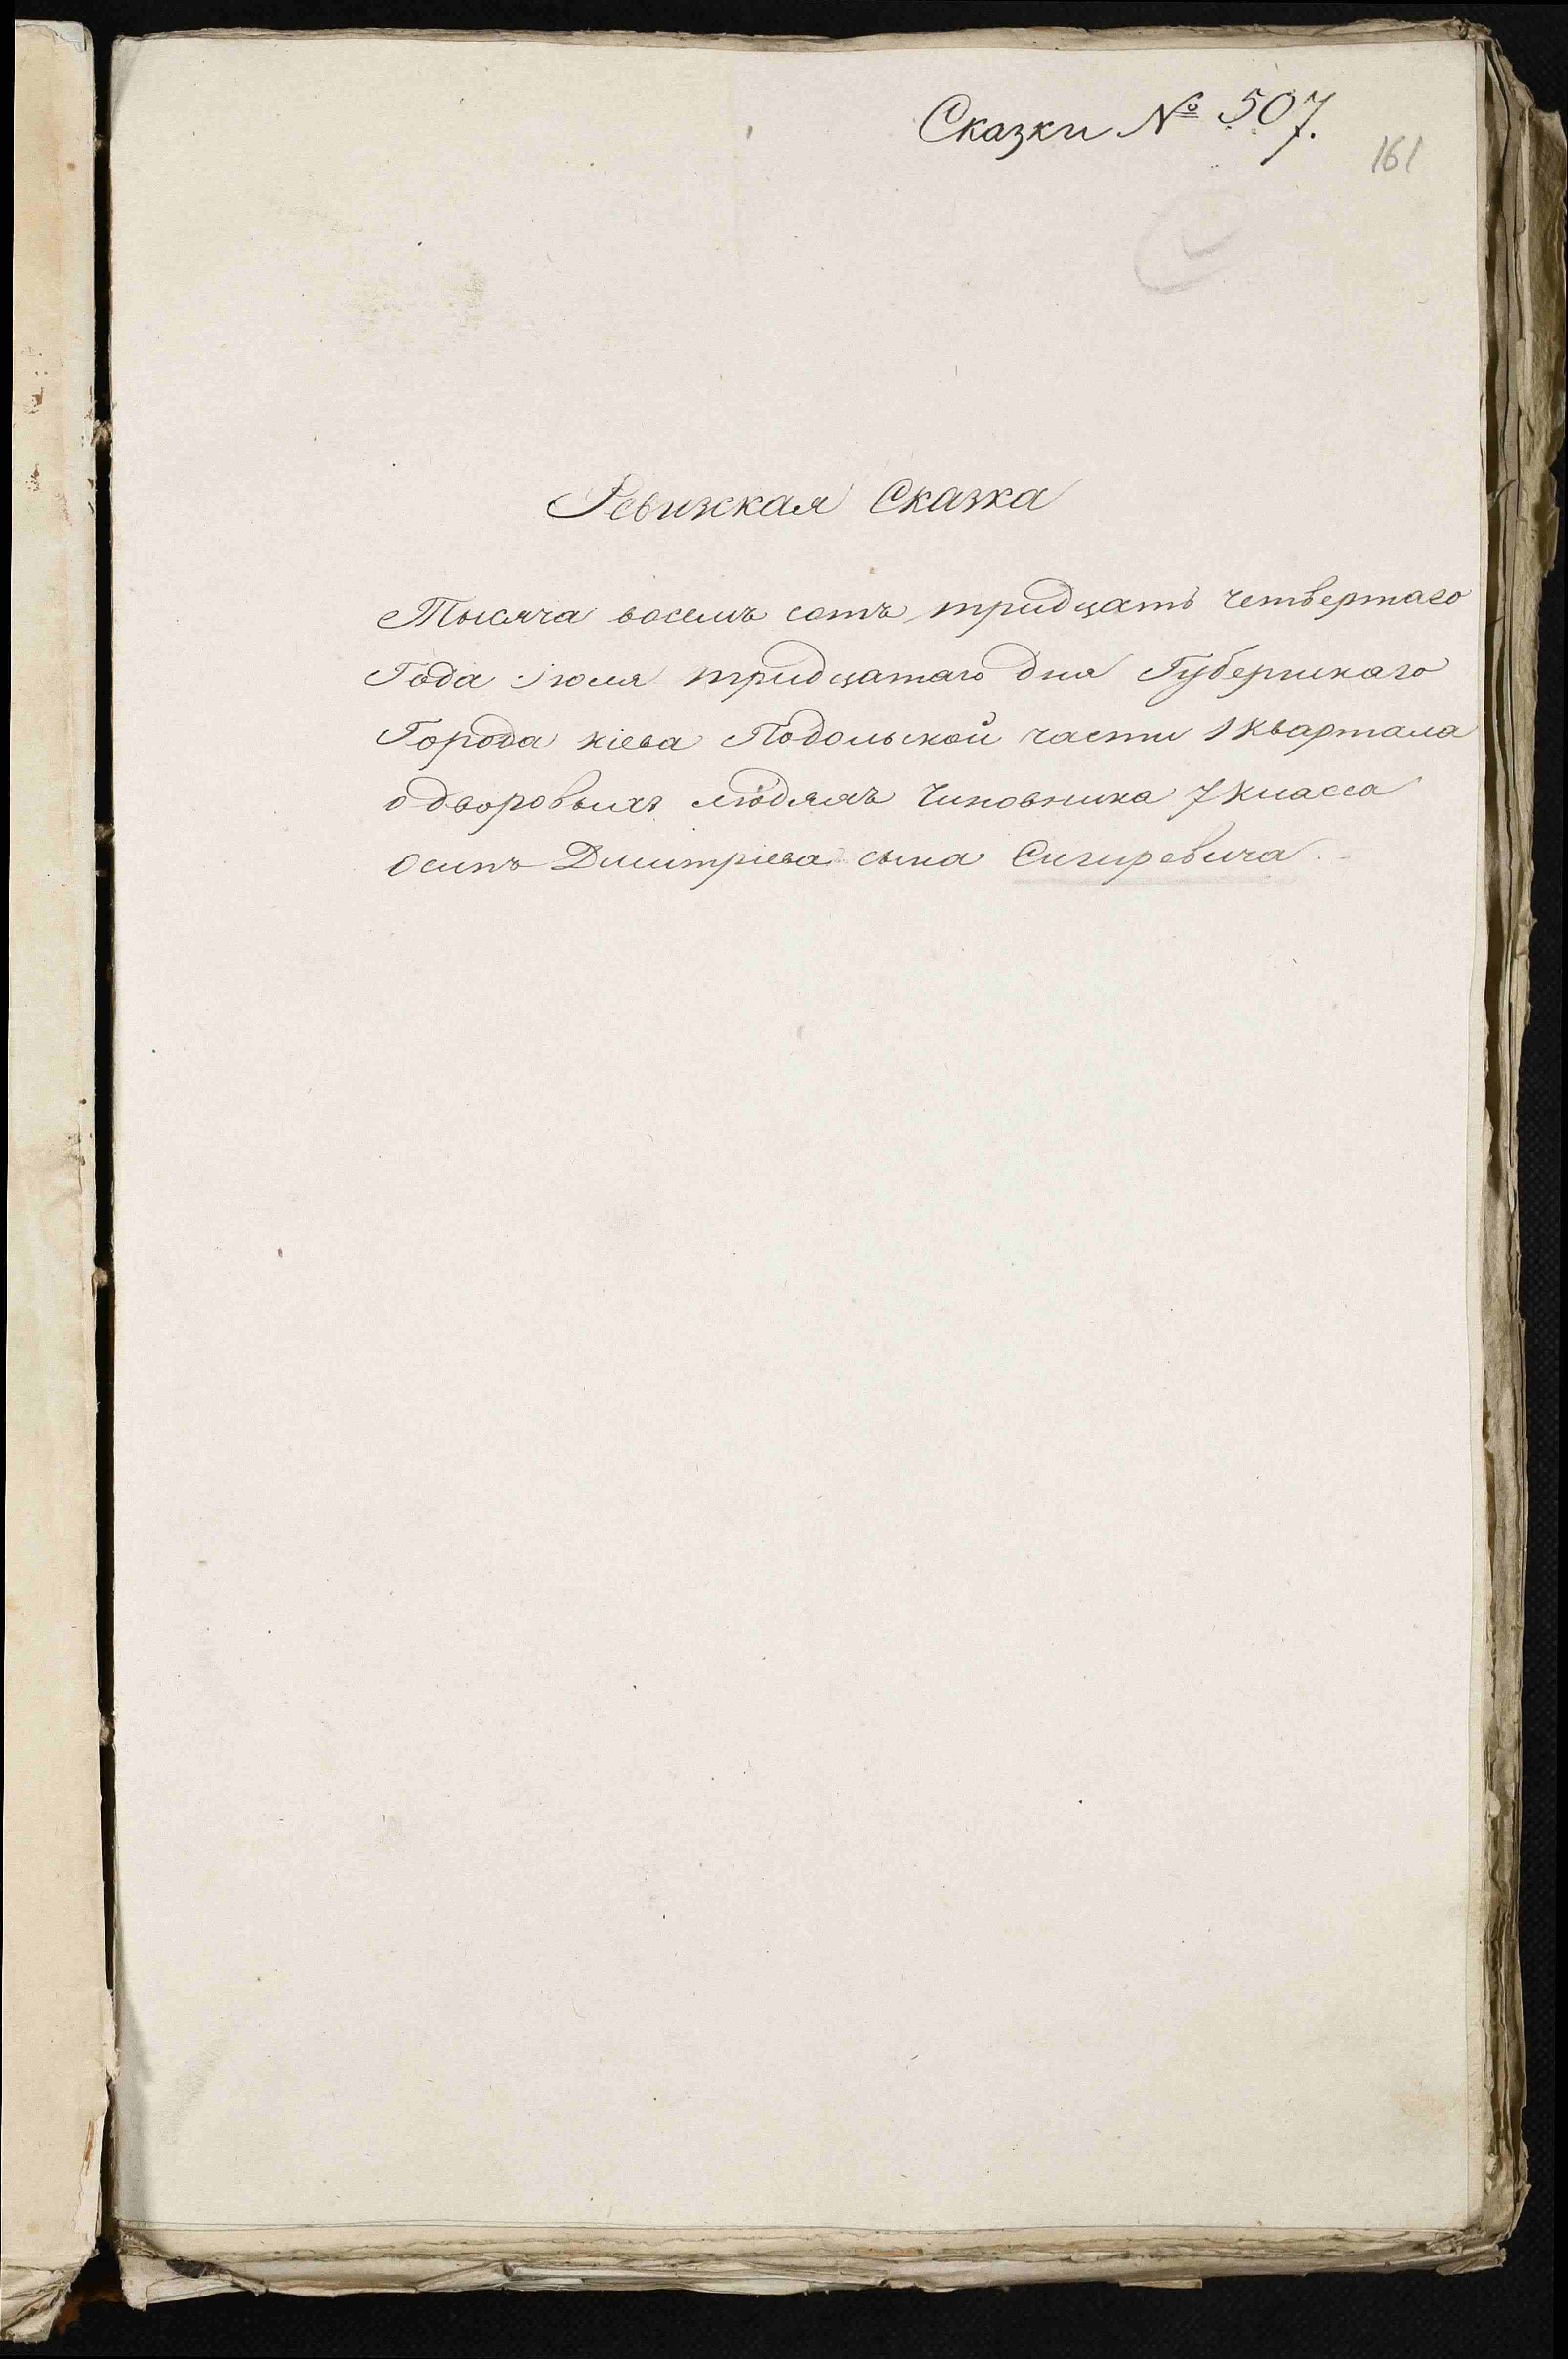 Сказки № 507.
161
Ревизкая Сказка
Тысяча восемъ сотъ тридцать четвертаго
Года Іюля тридцатаго дня Губернскаго
Города кіева Подольской части 1 квартала
о дворовыхъ людяхъ Чиновника 7 класса
Осипъ Дмитріева сына Сигиревича.